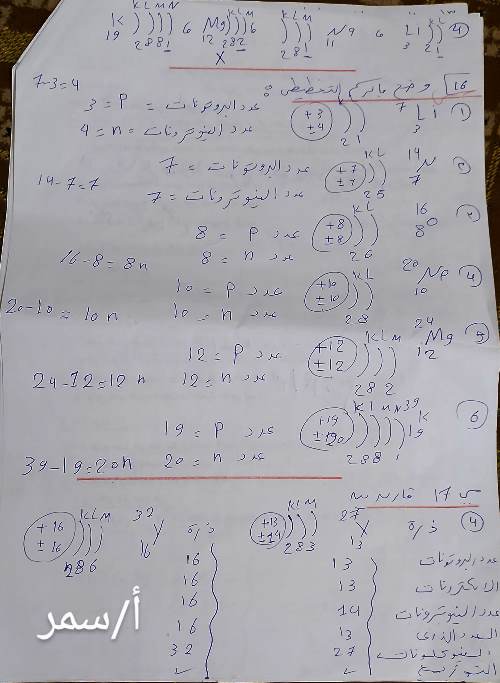 K ) ) ) ) 6 Mg ) ) ) 6 ) ) ) Na 6 Li ) ) ④
K L M N K L M K L M K L
19 2 8 8 1 12 2 8 2 2 8 1 11 3 2 1
X
16 وضح ماتركم التخطيط :
① 7 Li 3 +3 ±4 ) ) 2 1 عدد البروتونات = P = 3
7-3=4 عدد النيوترونات = n = 4
14 N 7 K L +7 ±7 ) ) 2 5 عدد البروتونات = 7
14-7=7 عدد النيوترونات = 7
16 O 8 K L +8 ±8 ) ) 2 6 عدد P = 8
16-8=8n عدد n = 8
④ 20 Ne 10 K L +10 ±10 ) ) 2 8 عدد P = 10
20-10=10n عدد n = 10
⑤ 24 Mg 12 K L M +12 ±12 ) ) ) 2 8 2 عدد P = 12
24-12=12n عدد n = 12
⑥ 39 K 19 K L M N +19 ±20 ) ) ) ) 2 8 8 1 عدد P = 19
39-19=20n عدد n = 20
س 17 قارن بين
④ ذرة 27 X 13 K L M +13 ±14 ) ) ) 2 8 3 ذرة 32 Y 16 K L M +16 ±16 ) ) ) 2 8 6
عدد البروتونات 13 16
الالكترونات 13 16
عدد النيوترونات 14 16
العدد الذري 13 16
النيوكلونات 27 32
التوزيع ✓ ✓
أ/سمر